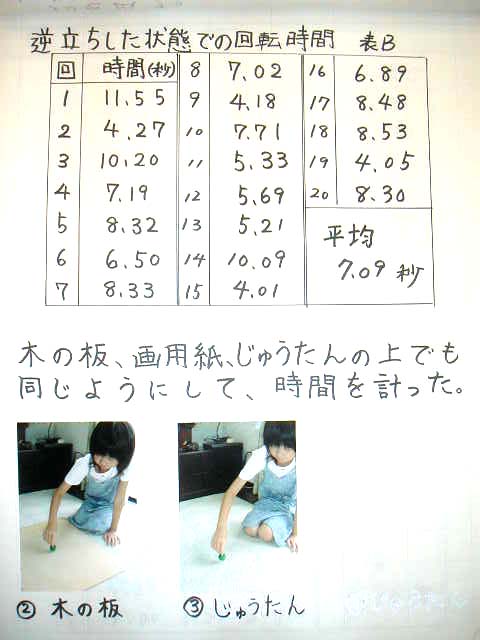 逆立ちした状態での回転時間 表B
回 時間(秒) 8 7.02 16 6.89
1 11.55 9 4.18 17 8.48
2 4.27 10 7.71 18 8.53
3 10.20 11 5.33 19 4.05
4 7.19 12 5.69 20 8.30
5 8.32 13 5.21 平均
6 6.50 14 10.09 7.09秒
7 8.33 15 4.01
木の板、画用紙、じゅうたんの上でも
同じようにして、時間を計った。
② 木の板 ③ じゅうたん